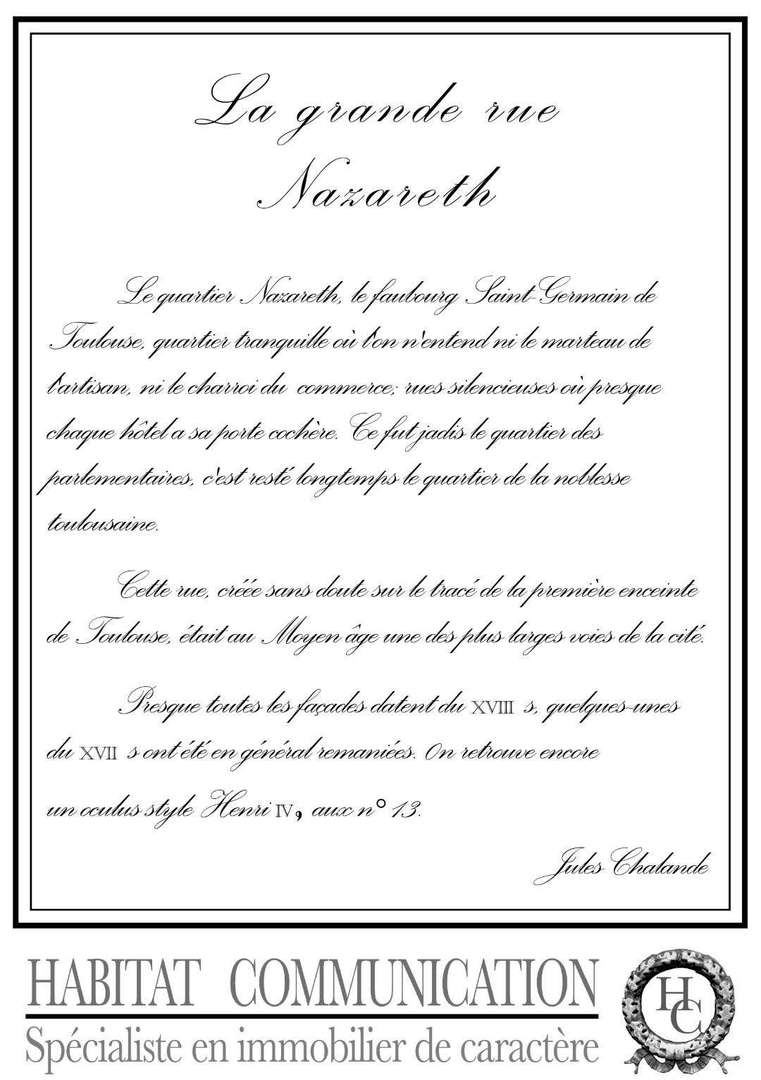 La grande rue
Nazareth
Le quartier Nazareth, le faubourg Saint-Germain de
Toulouse, quartier tranquille où l'on n'entend ni le marteau de
l'artisan, ni le charroi du commerce; rues silencieuses où presque
chaque hôtel a sa porte cochère. Ce fut jadis le quartier des
parlementaires, c'est resté longtemps le quartier de la noblesse
toulousaine.
Cette rue, créée sans doute sur le tracé de la première enceinte
de Toulouse, était au Moyen âge une des plus larges voies de la cité.
Presque toutes les façades datent du XVIII s, quelques-unes
du XVII s ont été en général remaniées. On retrouve encore
un oculus style Henri IV, aux n° 13.
Jules Chalande
HABITAT COMMUNICATION
Spécialiste en immobilier de caractère
HC